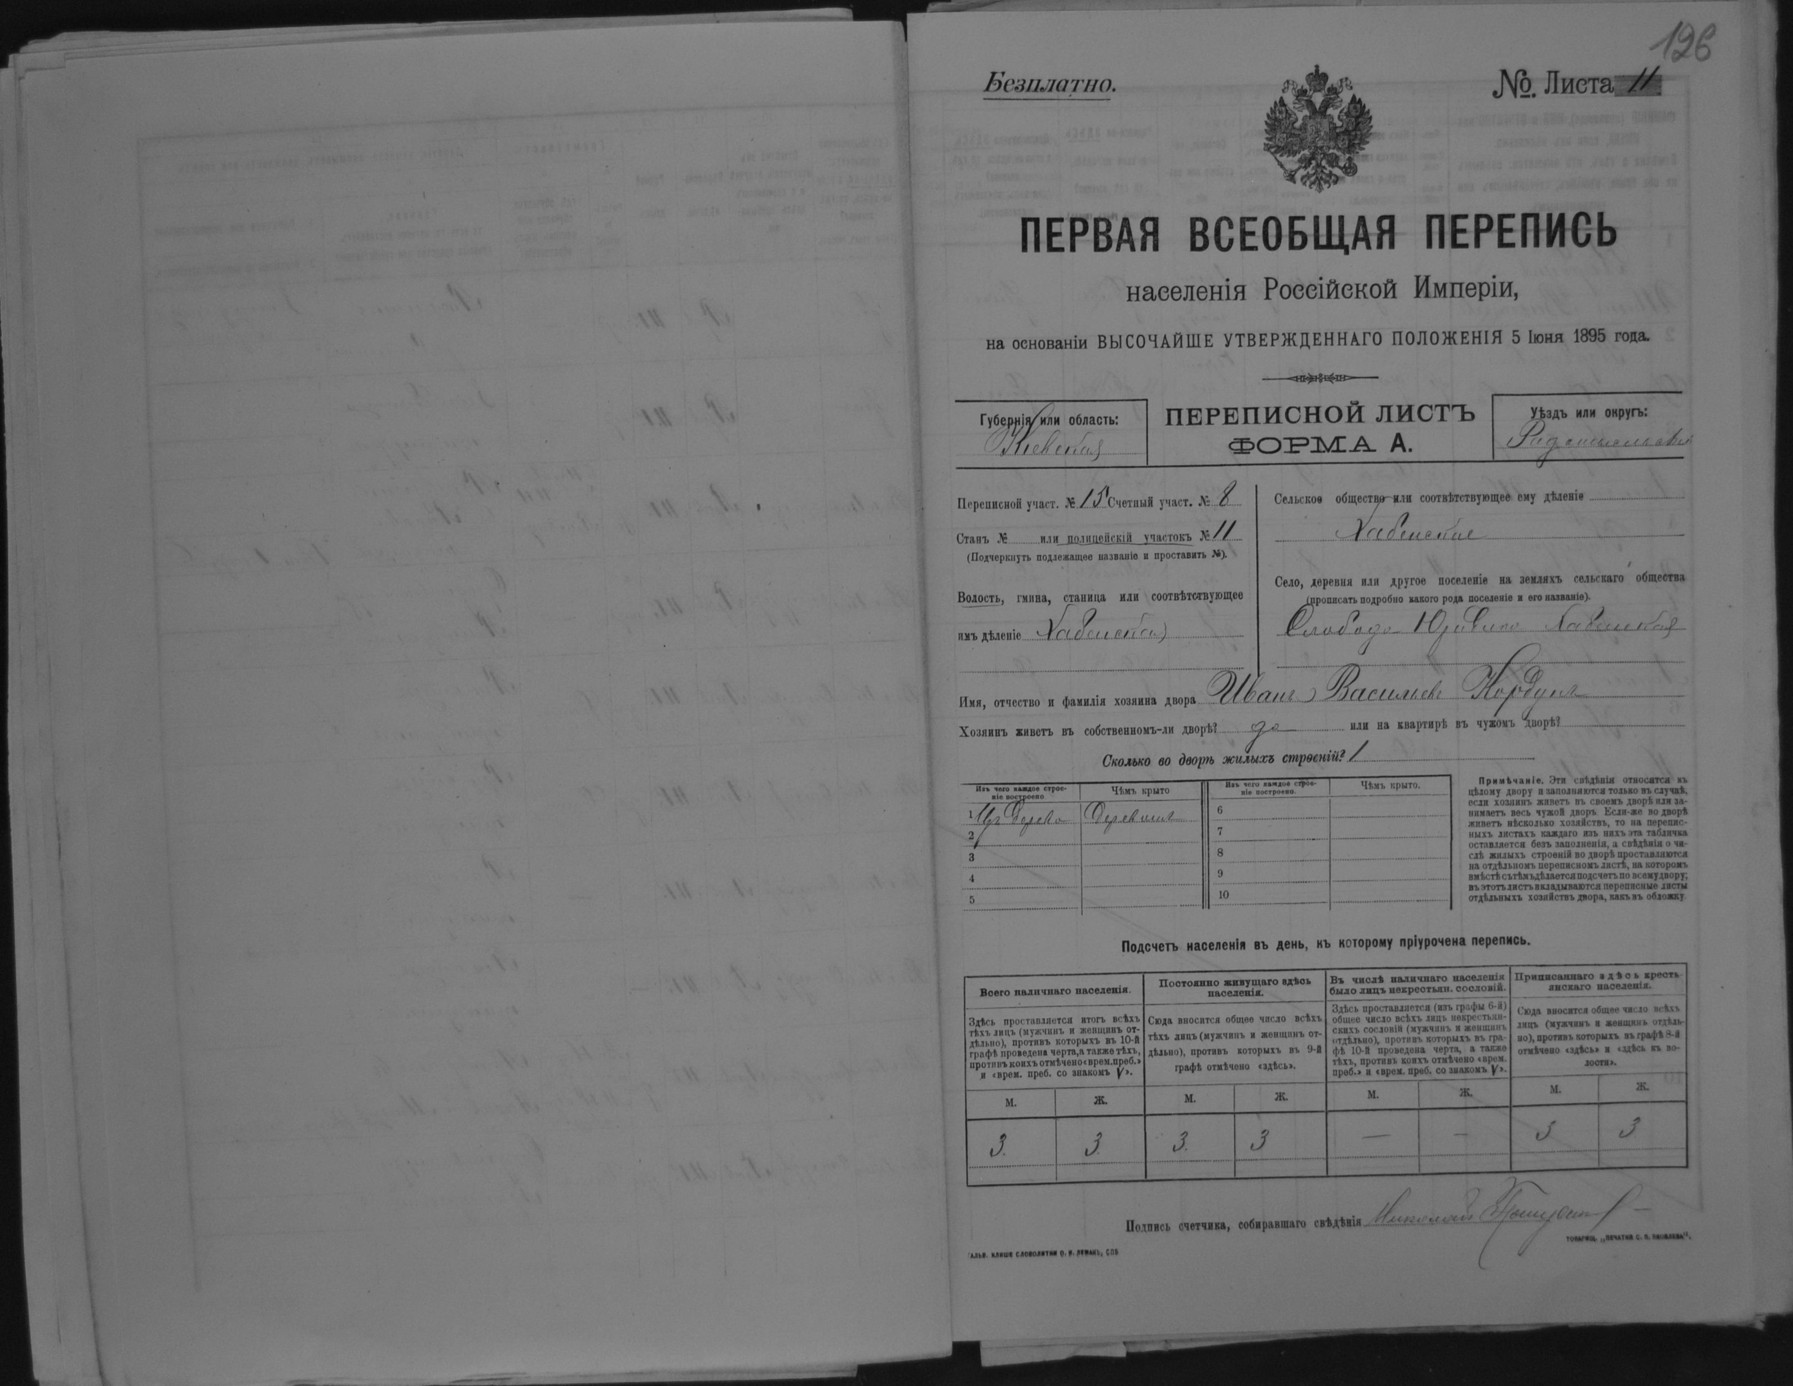 126
Безплатно.
№ Листа 11
ПЕРВАЯ ВСЕОБЩАЯ ПЕРЕПИСЬ
населенія Россійской Имперіи,
на основаніи ВЫСОЧАЙШЕ УТВЕРЖДЕННАГО ПОЛОЖЕНІЯ 5 Іюня 1895 года.
Губернія или область:
Кіевская
ПЕРЕПИСНОЙ ЛИСТЪ
ФОРМА А.
Уѣздъ или округъ:
Радомысльскій
Переписной участ. № 15 Счетный участ. № 8
Станъ № или полицейскій участокъ № 11
(Подчеркнуть подлежащее названіе и проставить №).
Волость, гмина, станица или соотвѣтствующее
имъ дѣленіе Хабенская
Сельское общество или соотвѣтствующее ему дѣленіе
Хабенское
Село, деревня или другое поселеніе на земляхъ сельскаго общества
(прописать подробно какого рода поселеніе и его названіе).
Слобода Хабенская
Имя, отчество и фамилія хозяина двора Иванъ Васильевъ Кордунъ
Хозяинъ живетъ въ собственномъ-ли дворѣ? да или на квартирѣ въ чужомъ дворѣ?
Сколько во дворѣ жилыхъ строеній? 1
Изъ чего каждое строе-
ніе построено
Чѣмъ крыто
Изъ чего каждое строе-
ніе построено.
Чѣмъ крыто.
1 Изъ дерева
2
3
4
5
6
7
8
9
10
Примѣчаніе. Эти свѣдѣнія относятся къ
цѣлому двору и заполняются только въ случаѣ,
если хозяинъ живетъ въ своемъ дворѣ или за-
нимаетъ весь чужой дворъ. Если-же во дворѣ
живетъ нѣсколько хозяйствъ, то на перепис-
ныхъ листахъ каждаго изъ нихъ эта табличка
оставляется безъ заполненія, а свѣдѣнія о чи-
слѣ жилыхъ строеній во дворѣ проставляются
на отдѣльномъ переписномъ листѣ, на которомъ
вмѣстѣ съ тѣмъ дѣлается подсчетъ по всему двору;
въ этотъ листъ вкладываются переписные листы
отдѣльныхъ хозяйствъ двора, какъ въ обложку
Подсчетъ населенія въ день, къ которому пріурочена перепись.
Всего наличнаго населенія.
Здѣсь проставляется итогъ всѣхъ
тѣхъ лицъ (мужчинъ и женщинъ от-
дѣльно), противъ которыхъ въ 10-й
графѣ проведена черта, а также тѣхъ,
противъ коихъ отмѣчено «врем. преб.»
и «врем. преб. со знакомъ V».
Постоянно живущаго здѣсь
населенія.
Сюда вносится общее число всѣхъ
тѣхъ лицъ (мужчинъ и женщинъ от-
дѣльно), противъ которыхъ въ 9-й
графѣ отмѣчено «здѣсь».
Въ числѣ наличнаго населенія
было лицъ некрестьян. сословій.
Здѣсь проставляется (изъ графы 6-й)
общее число всѣхъ лицъ некрестьян-
скихъ сословій (мужчинъ и женщинъ
отдѣльно), противъ которыхъ въ гра-
фѣ 10-й проведена черта, а также
тѣхъ, противъ коихъ отмѣчено «врем.
преб.» и «врем. преб. со знакомъ V».
Приписаннаго здѣсь кресть-
янскаго населенія.
Сюда вносится общее число всѣхъ
лицъ (мужчинъ и женщинъ отдѣль-
но), противъ которыхъ въ графѣ 8-й
отмѣчено «здѣсь» и «здѣсь въ во-
лости».
М. Ж. М. Ж. М. Ж. М. Ж.
3. 3 3. 3 — — 3 3
Подпись счетчика, собиравшаго свѣдѣнія Николай